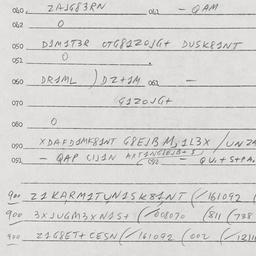 060. ZAJG83RN 061 - QAM
062 0
050 D1M1T3R OTG81ZOJG+ DUSK81NT
051 0 .
060 DR1ML ) DZ+1M 061 -
070 G1ZOJG+
080 0
090 XDAFD1MF81NT G8EJBM, 1L3X /
091 - QAP C1J1N 092 - QU. + S+PA.
900 Z1KARM1TUN1SK81NT (/161092
900 3XJUGM3XN1S+ (/008070 (811 (738
900 Z1G8ET+CESN (/161092 (002